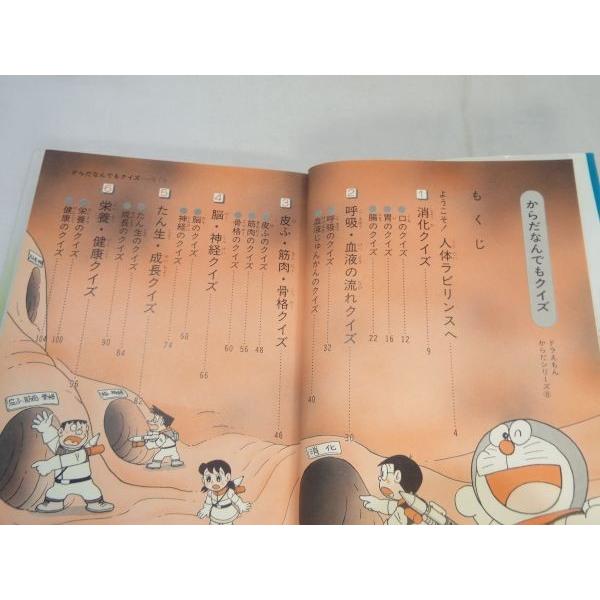 からだなんでもクイズ
ドラえもん
からだシリーズ⑧
もくじ
ようこそ! 人体ラビリンスへ 4
1 消化クイズ 9
口のクイズ 12
胃のクイズ 16
腸のクイズ 22
2 呼吸・血液の流れクイズ 30
呼吸のクイズ 32
血液じゅんかんのクイズ 40
消化
からだなんでもクイズ
3 皮ふ・筋肉・骨格クイズ 46
皮ふのクイズ 48
筋肉のクイズ 56
骨格のクイズ 60
4 脳・神経クイズ 66
脳のクイズ
神経のクイズ
5 たん生・成長クイズ 74
たん生のクイズ
成長のクイズ
6 栄養・健康クイズ 96
栄養のクイズ 100
健康のクイズ 104
皮ふ・筋肉・骨格